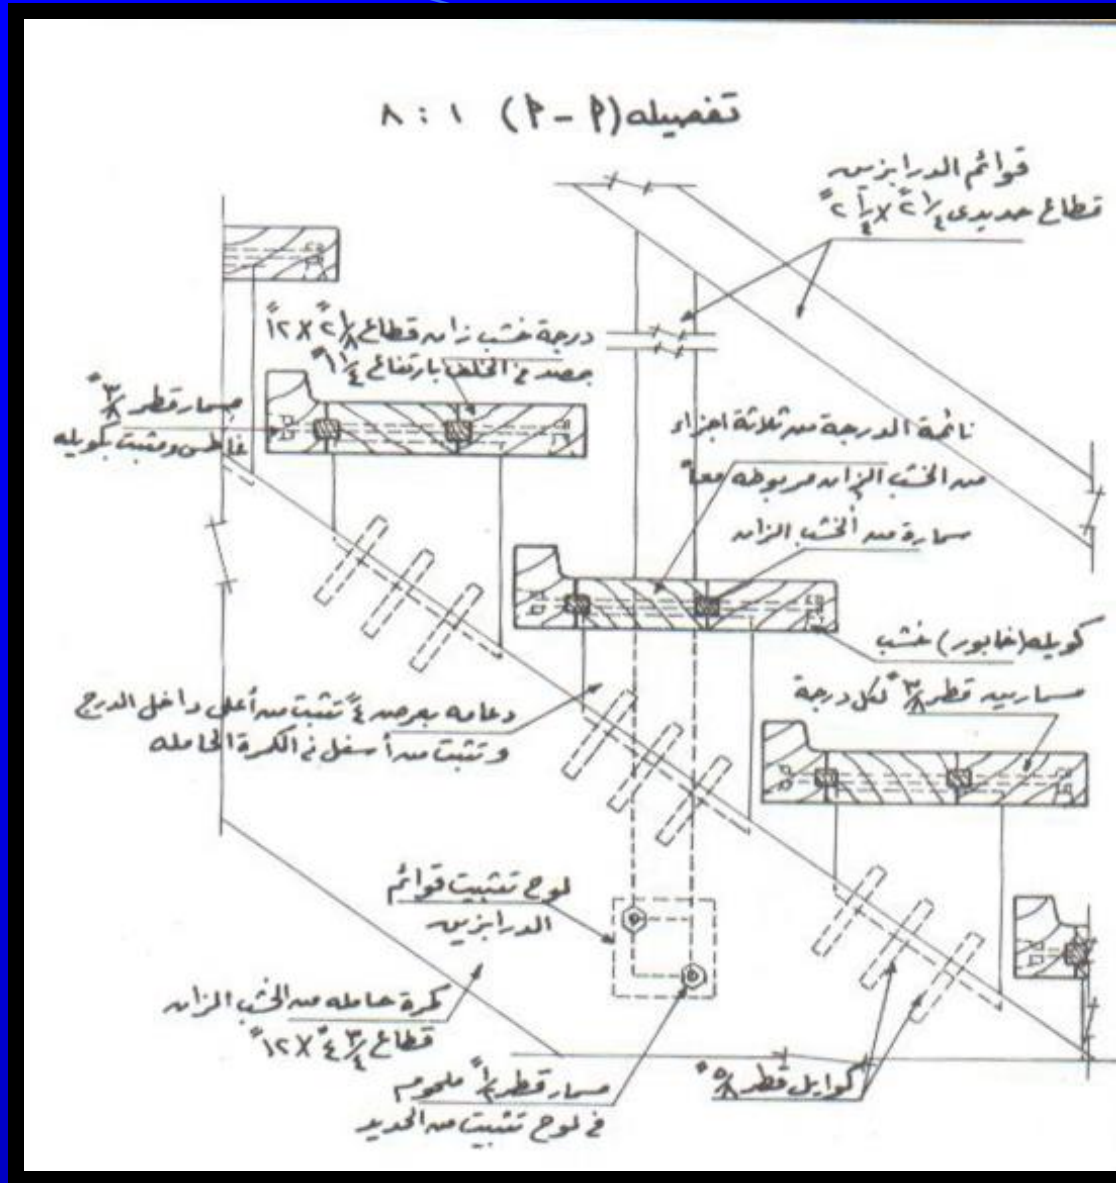 تفصيله (م - م) ١ : ٨
قوائم الدرابزين
قطاع حديدى ٢ ١/٤ً × ٢ ١/٤ً
درجة خشب زان قطاع ٢ ١/٨ً × ١٢ً
بمصد فى الخلف بارتفاع ١ ١/٤ً
مسمار قطر ٣/٨ً
غاطس ومثبت بكويله
نائمة الدرجة من ثلاثة اجزاء
من الخشب الزان مربوطه معاً
سمارة من الخشب الزان
كويله (خابور) خشب
مسمارين قطر ٣/٨ً لكل درجة
دعامه بعرض ٤ً تثبت من أعلى داخل الدرج
وتثبت من أسفل فى الكمرة الحامله
لوح تثبيت قوائم
الدرابزين
كمرة حامله من الخشب الزان
قطاع ٤ ٣/٤ً × ١٢ً
مسمار قطر ١/٢ً ملحوم
فى لوح تثبيت من الحديد
كوايل قطر ٥/٨ً